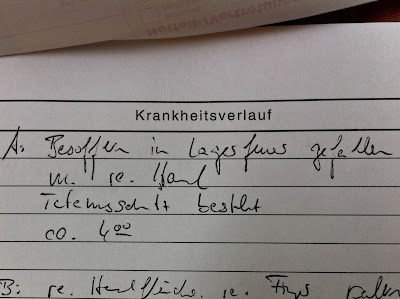 Krankheitsverlauf
A: Besoffen in Lagerfeuer gefallen
m. re. Hand
Tetanusschutz besteht
ca. 4⁰⁰
B: re. Handfläche, re.